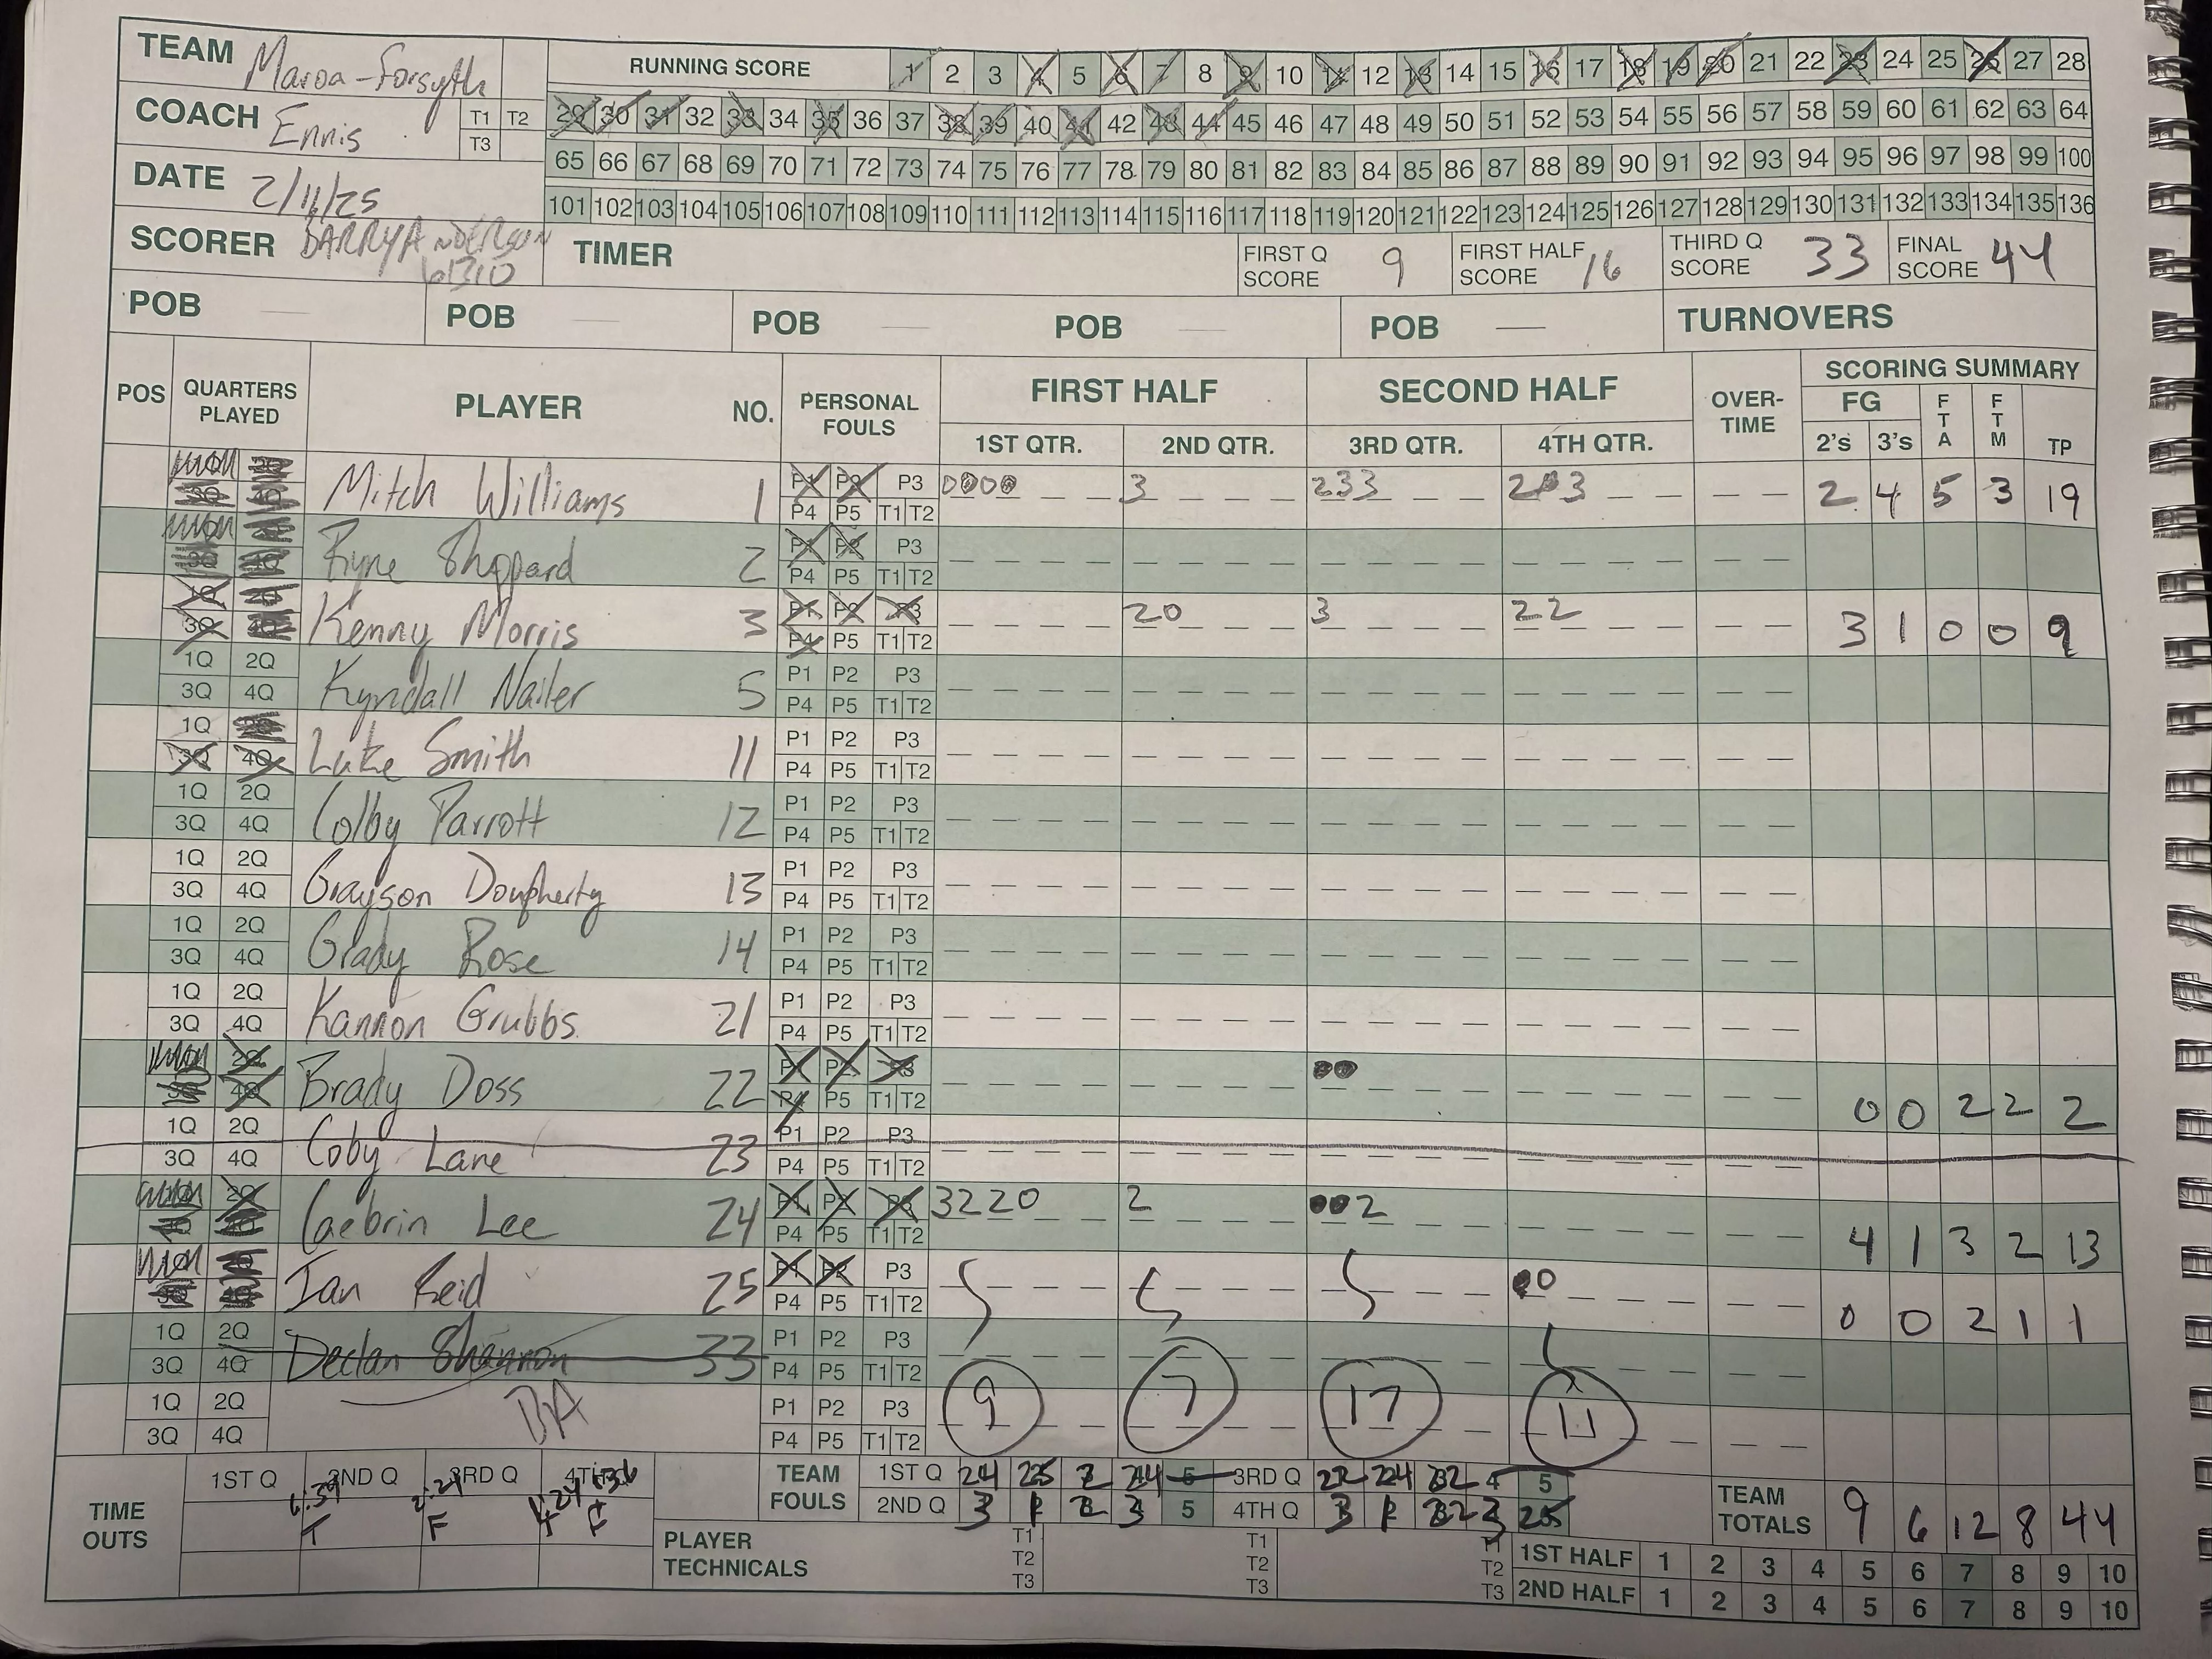 TEAM Maroa-Forsyth
RUNNING SCORE 1 2 3 4 5 6 7 8 9 10 11 12 13 14 15 16 17 18 19 20 21 22 23 24 25 26 27 28
COACH Ennis T1 T2 T3
29 30 31 32 33 34 35 36 37 38 39 40 41 42 43 44 45 46 47 48 49 50 51 52 53 54 55 56 57 58 59 60 61 62 63 64
65 66 67 68 69 70 71 72 73 74 75 76 77 78 79 80 81 82 83 84 85 86 87 88 89 90 91 92 93 94 95 96 97 98 99 100
DATE 2/11/25
101 102 103 104 105 106 107 108 109 110 111 112 113 114 115 116 117 118 119 120 121 122 123 124 125 126 127 128 129 130 131 132 133 134 135 136
SCORER BARRY ANDERSON
61310
TIMER
FIRST Q SCORE 9
FIRST HALF SCORE 16
THIRD Q SCORE 33
FINAL SCORE 44
POB POB POB POB POB TURNOVERS
POS QUARTERS PLAYED PLAYER NO. PERSONAL FOULS FIRST HALF SECOND HALF OVER-TIME SCORING SUMMARY
1ST QTR. 2ND QTR. 3RD QTR. 4TH QTR. FG 2's 3's FTA FTM TP
Mitch Williams 1 P1 P2 P3 3 233 2 4 5 3 19
P4 P5 T1 T2
Ryne Shoppard 2 P1 P2 P3
P4 P5 T1 T2
Kenny Morris 3 P1 P2 P3 20 3 22 3 1 0 0 9
P4 P5 T1 T2
1Q 2Q Kyndall Nailer 5 P1 P2 P3
3Q 4Q P4 P5 T1 T2
1Q 2Q Luke Smith 11 P1 P2 P3
3Q 4Q P4 P5 T1 T2
1Q 2Q Colby Parrott 12 P1 P2 P3
3Q 4Q P4 P5 T1 T2
1Q 2Q Grayson Dougherty 13 P1 P2 P3
3Q 4Q P4 P5 T1 T2
1Q 2Q Grady Rose 14 P1 P2 P3
3Q 4Q P4 P5 T1 T2
1Q 2Q Kannon Grubbs 21 P1 P2 P3
3Q 4Q P4 P5 T1 T2
2Q Brady Doss 22 P1 P2 P3 0 0 2 2 2
3Q 4Q P4 P5 T1 T2
1Q 2Q Coby Lane 23 P1 P2 P3
3Q 4Q P4 P5 T1 T2
2Q Caebrin Lee 24 P1 P2 P3 3220 2 2 4 1 3 2 13
P4 P5 T1 T2
Ian Reid 25 P1 P2 P3 0 0 0 2 1 1
P4 P5 T1 T2
1Q 2Q Declan Shannon 33 P1 P2 P3
3Q 4Q P4 P5 T1 T2
1Q 2Q BA P1 P2 P3 9 7 17 11
3Q 4Q P4 P5 T1 T2
TIME OUTS 1ST Q 2ND Q 3RD Q 4TH
T F F
TEAM FOULS 1ST Q 24 25 2 24 5 3RD Q 22 24 4 5
2ND Q 3 1 2 3 5 4TH Q 3 1 22 3 25
TEAM TOTALS 9 6 12 8 44
PLAYER TECHNICALS T1 T2 T3 T1 T2 T3 T1 T2 T3
1ST HALF 1 2 3 4 5 6 7 8 9 10
2ND HALF 1 2 3 4 5 6 7 8 9 10